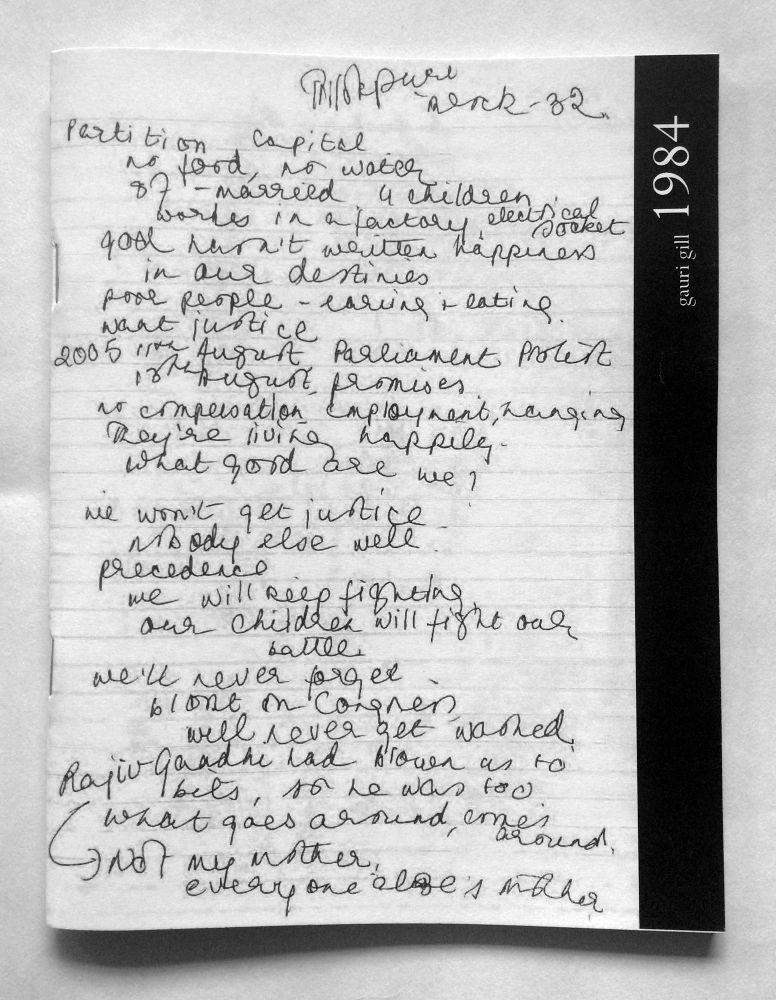 Trilokpuri
Block - 32.
Partition Capital
no food, no water
87 - married 4 children
works in a factory, electrical
socket
god hasn't written happiness
in our destinies
poor people - earning + eating.
want justice
2005 11th August Parliament Protest
18th August, promises
no compensation employment, hanging
They're living happily.
What good are we?
we won't get justice
nobody else will.
precedence
we will keep fighting,
our children will fight our
battle.
we'll never forget.
blot on Congress
will never get washed.
Rajiv Gandhi had blown us to
bits, so he was too
what goes around, comes
around.
Not my mother,
everyone else's mother
1984
gauri gill